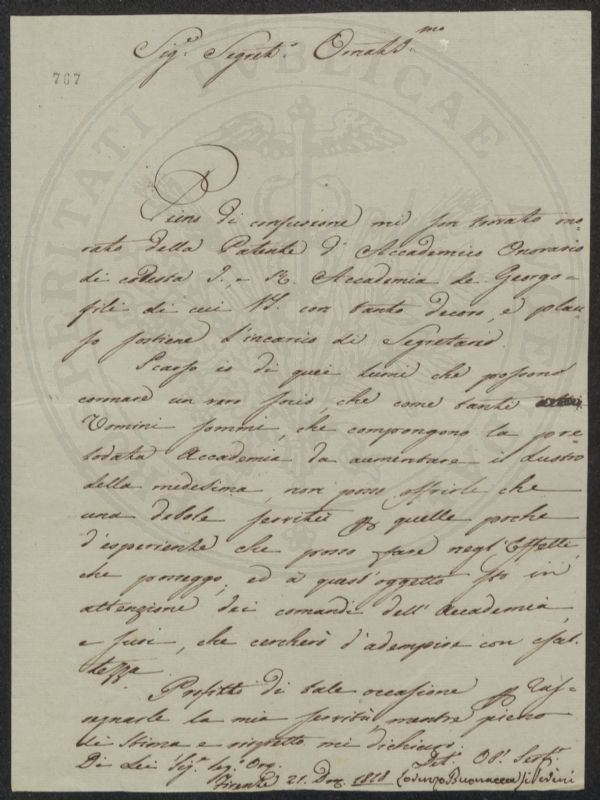 Sig.r Segret.o Ornatiss.mo
767
Pieno di confusione mi son trovato ono-
rato della Patente d'Accademico Onorario
di codesta I. e R. Accademia de Georgo-
fili di cui VS. con tanto decoro, e plau-
so sostiene l'incarico di Segretario.
Scarso io di quei lumi che possono
formare un vero socio che come tanti
Uomini sommi, che compongono la pre-
lodata Accademia da aumentare il Lustro
della medesima, non posso offrirle che
una debole servitù p quelle poche
d'esperienze che posso fare negl'Effetti,
che posseggo, ed a quest'oggetto sto in
attenzione dei comandi dell'Accademia,
e suoi, che cercherò d'adempire con esat-
tezza
Profitto di tale occasione p ras-
segnarle la mia servitù mentre pieno
di stima e rispetto mi dichiaro
Di Lei Sig.r Seg. Det. Ob. Serv.
Firenze 21. 1818 Lorenzo Buonaccorsi